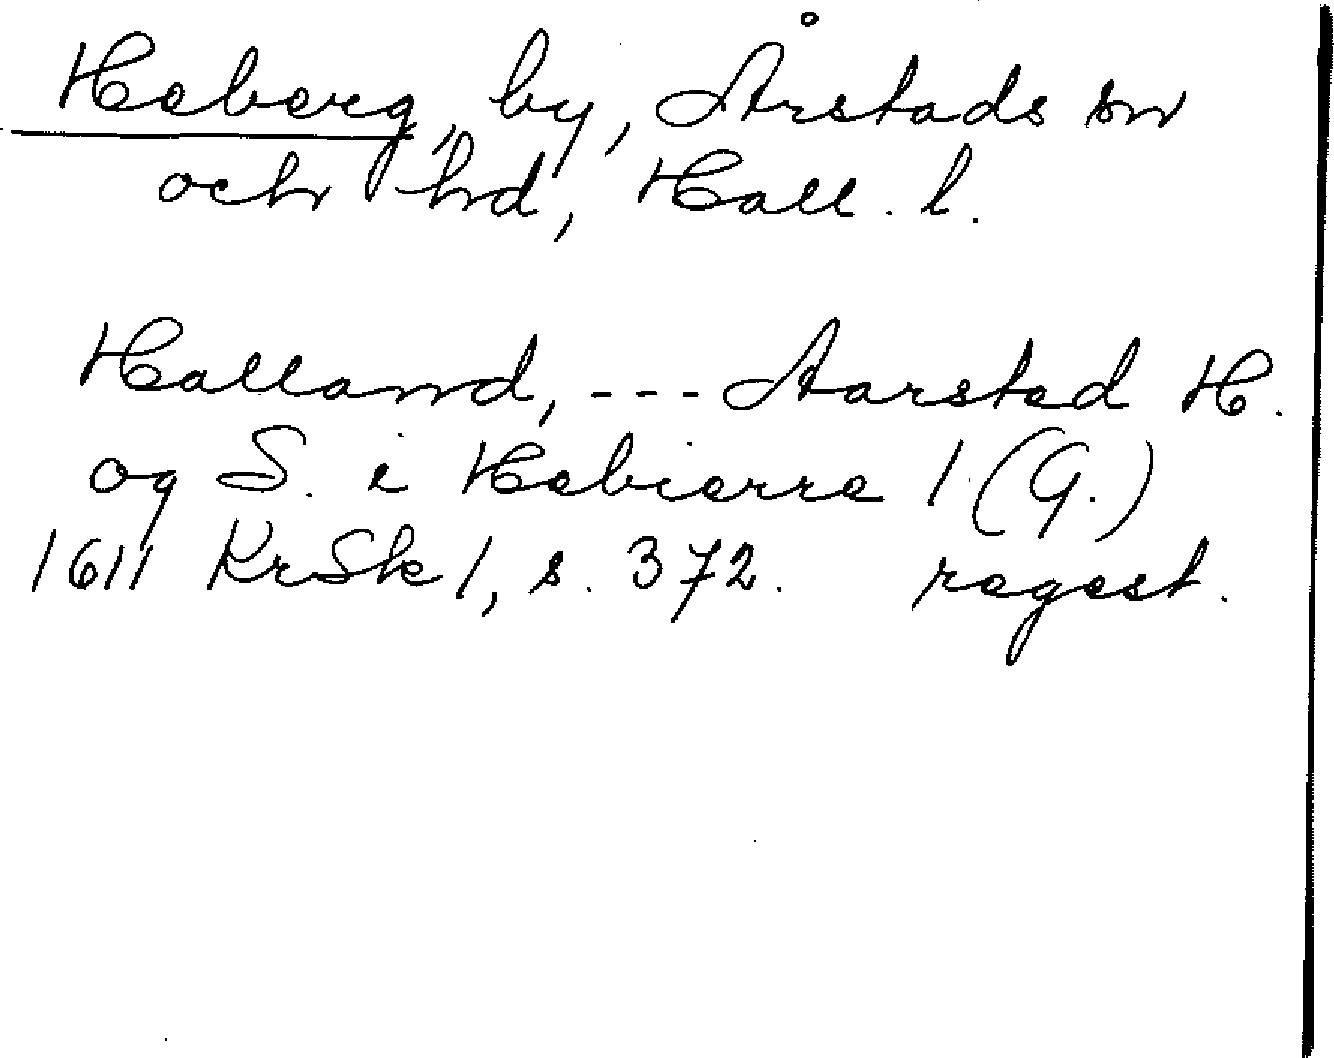 Heberg, by, Årstads sn
och hd, Hall. l.
Halland, --- Aarstad H.
og S. i Hebierre 1 (G.)
1611 KrSk 1, s. 372. regest.